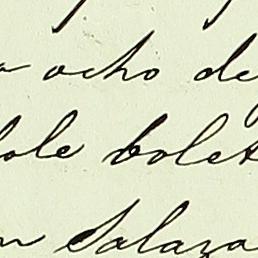 ocho de
dole bolet
n Salaza